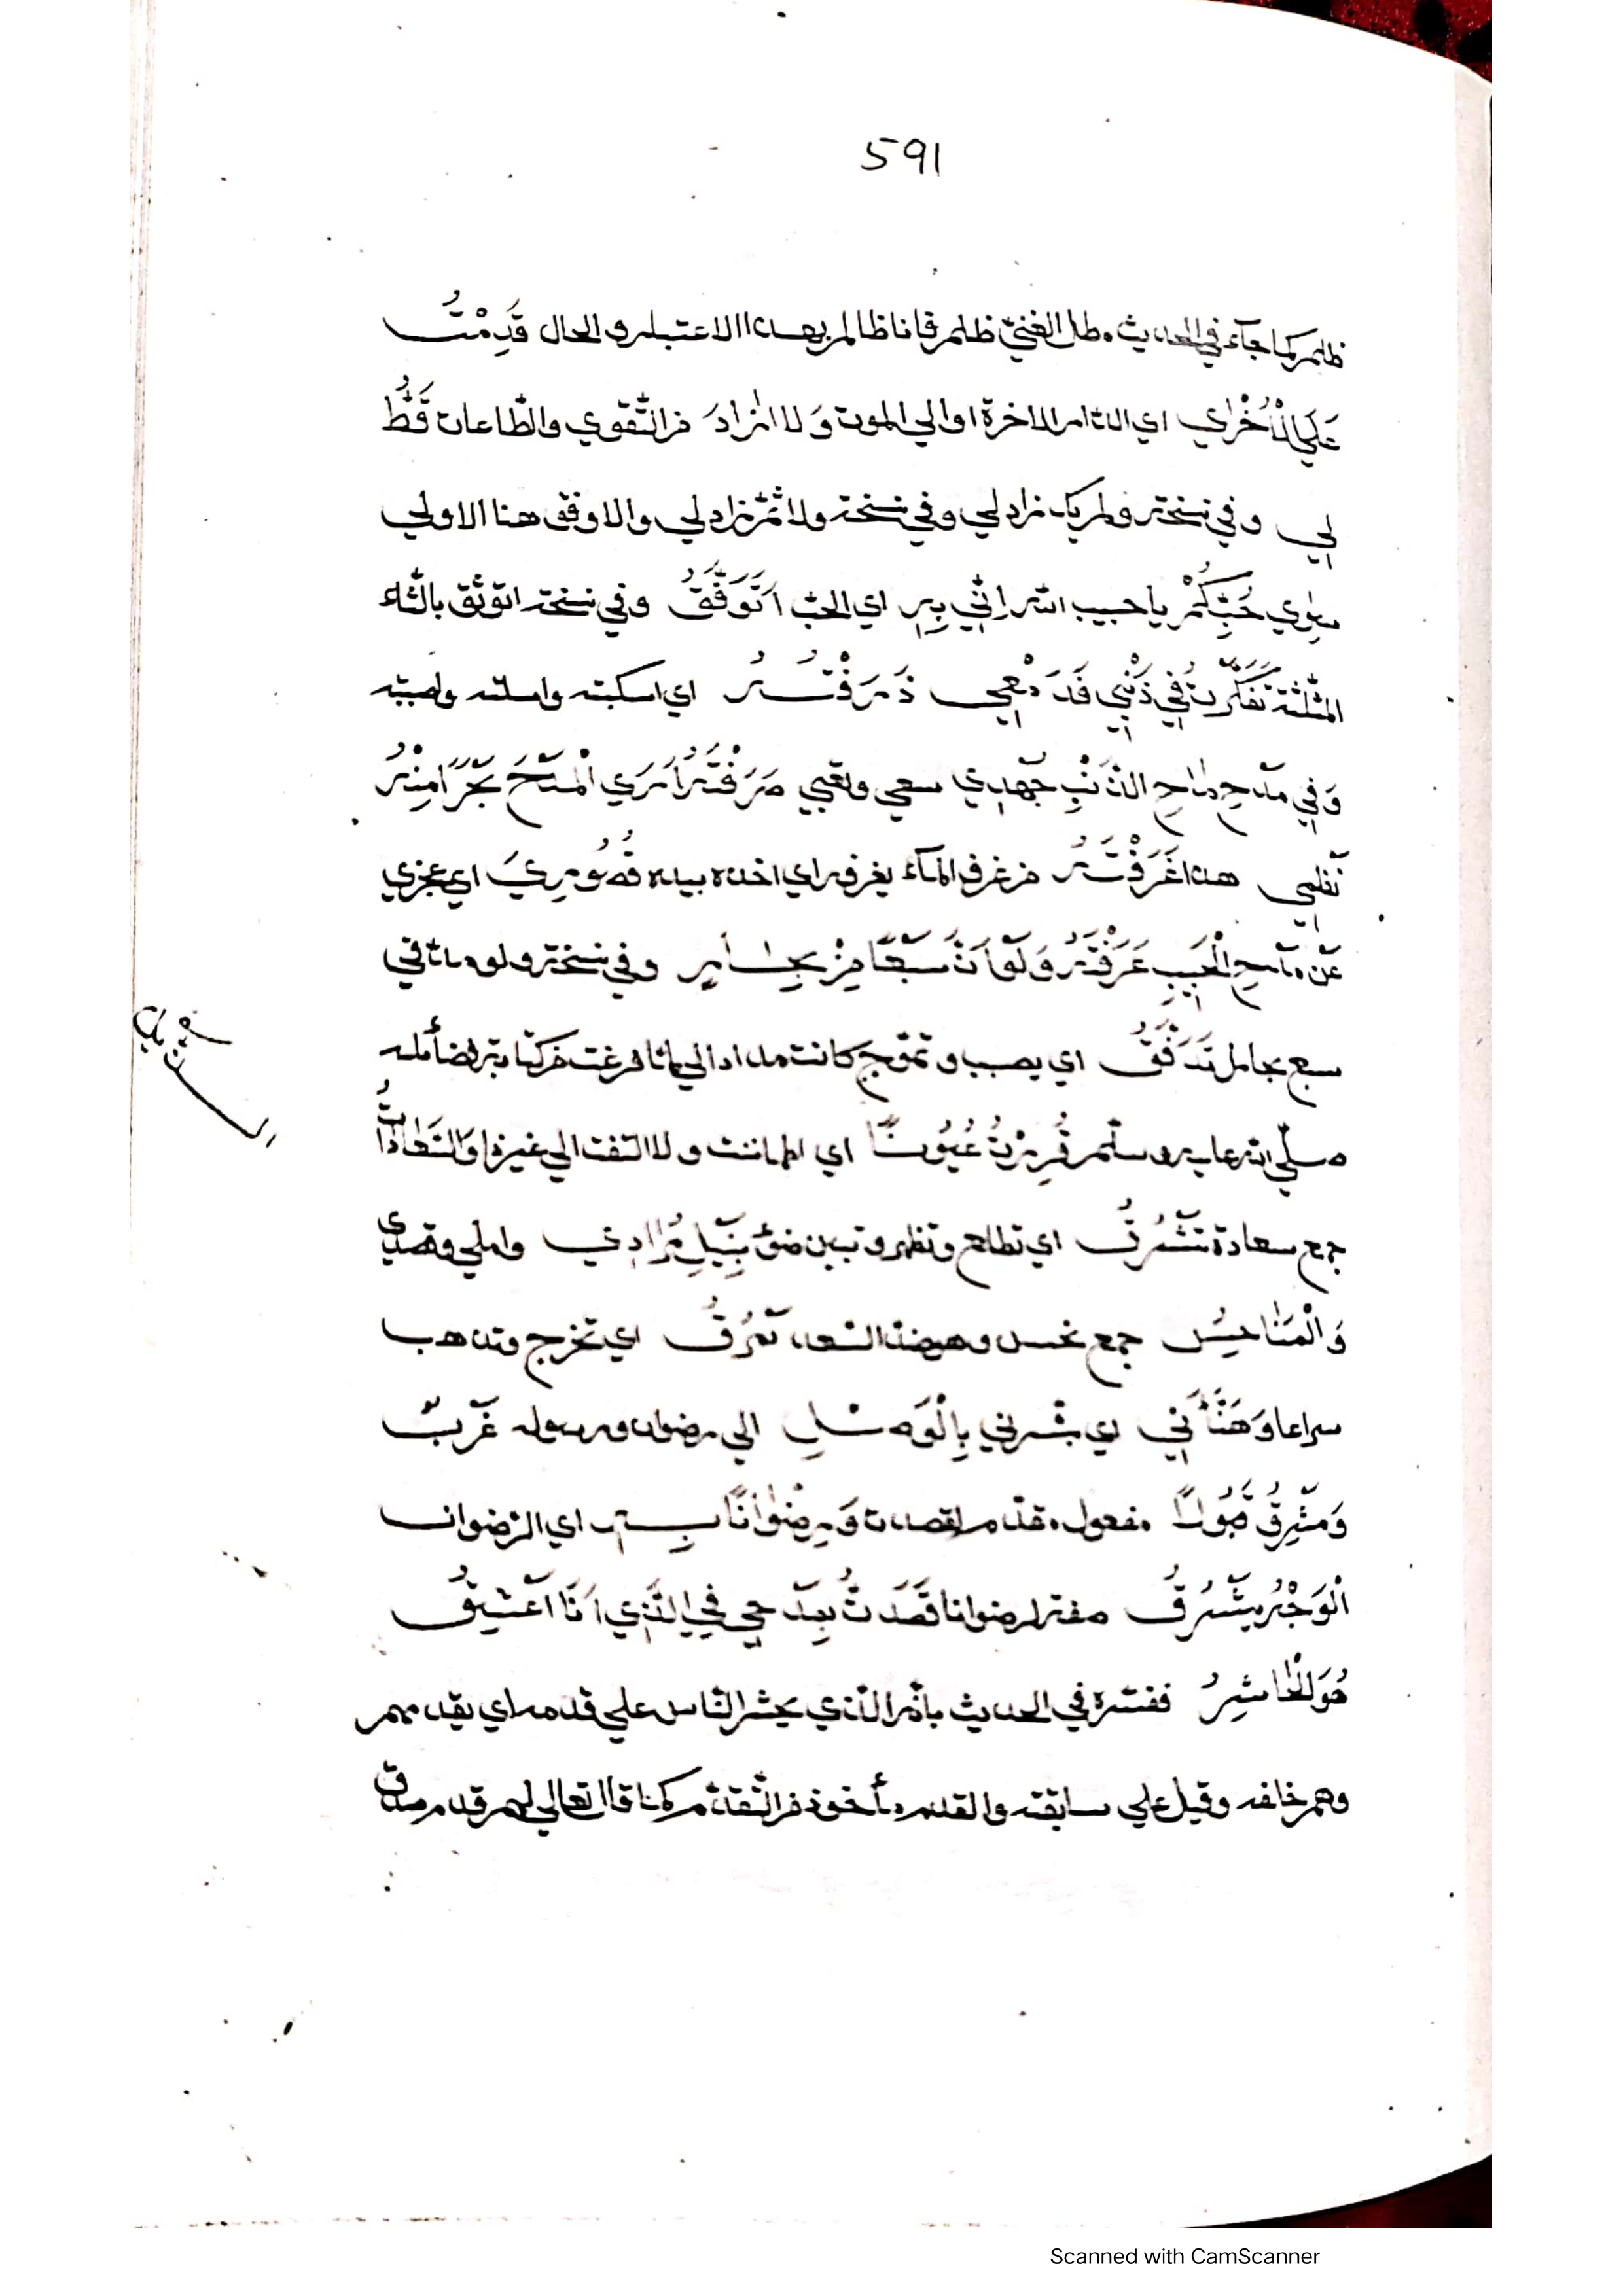 591
ظلم كما جآء في الحديث مطل الغنيّ ظلم فانا ظالم بهذا الاعتبار والحال قَدِمْتُ
عَلَي الْأُخْرٰي اي الدّار الاخرة او الي الموت وَلَا زَادَ من التّقوي والطّاعات قَطُّ
لِي وفي نسخة ولم يك زاد لي وفي نسخة ولا ثمّ زاد لي والاوفق هنا الاولي
سِوٰي حُبِّكُمْ يا حبيب اللّٰه اِنِّي بِهِ اي الحبّ اَتَوَفَّقُ وفي نسخة اتوثّق بالثّاء
المثلّثة تَفَكَّرْتُ فِي ذَنْبِي فَدَمْعِي ذَرَفْتُهُ اي اسكبته واسلته وصببته
وَفِي مَدْحِ مَاحِ الذَّنْبِ جَهْدِي سعي وتعبي صَرَفْتُهُ اَرَي الْمَدْحَ بَحْرًا مِنْهُ
نَظْمِي هذا غَرَفْتُهُ من غرف المآء يغرفه اي اخذه بيده قُصُورِيَ اي عجزي
عَنْ مَدْحِ الْحَبِيبِ عَرَفْتُهُ وَلَوْ اَنَّ سَبْعًا مِنْ بِحَارٍ وفي نسخة ولو مدّتي
سبع بحار تَدَفَّقُ اي يصبب و تموّج كانت مدادا لي لما فرغت من كتابة فضائله
السّرْثيل
صلّي اللّٰه عليه وسلّم قُرِرْتُ عُيُونًا اي اطماننت ولا التفت الي غيره وَالسَّعَادَاتُ
جمع سعادة تُشْرِقُ اي تطلع وتظهر وتبين ضوئ بِنَيْلِ مُرَادِي واملي وقصدي
وَالْمَنَاحِيسُ جمع نحس وهو ضدّ السّعد تَمْرُقُ اي تخرج وتذهب
سراعا وَهَنَّأَنِي اي بشّرني بِالْوَصْلِ الي رضوان ورسوله غَرْبٌ
وَمَشْرِقُ قَبُولًا مفعول مقدّم لقصدت وَرِضْوَانًا بِهِ اي الرّضوان
الْوَجْهُ يُشْرِقُ صفة لرضوانا قَصَدْتُ بِمَدْحِي فِي الَّذِي اَنَا اَعْشِقُ
هُوَ الْحَاشِرُ ففسّره في الحديث بانّه الّذي يحشر النّاس علي قدمه اي يقدمهم
وهم خلفه وقيل علي سابقته والقدم مأخوذ من التّقدّم كما قال تعالي لهم قدم صدق